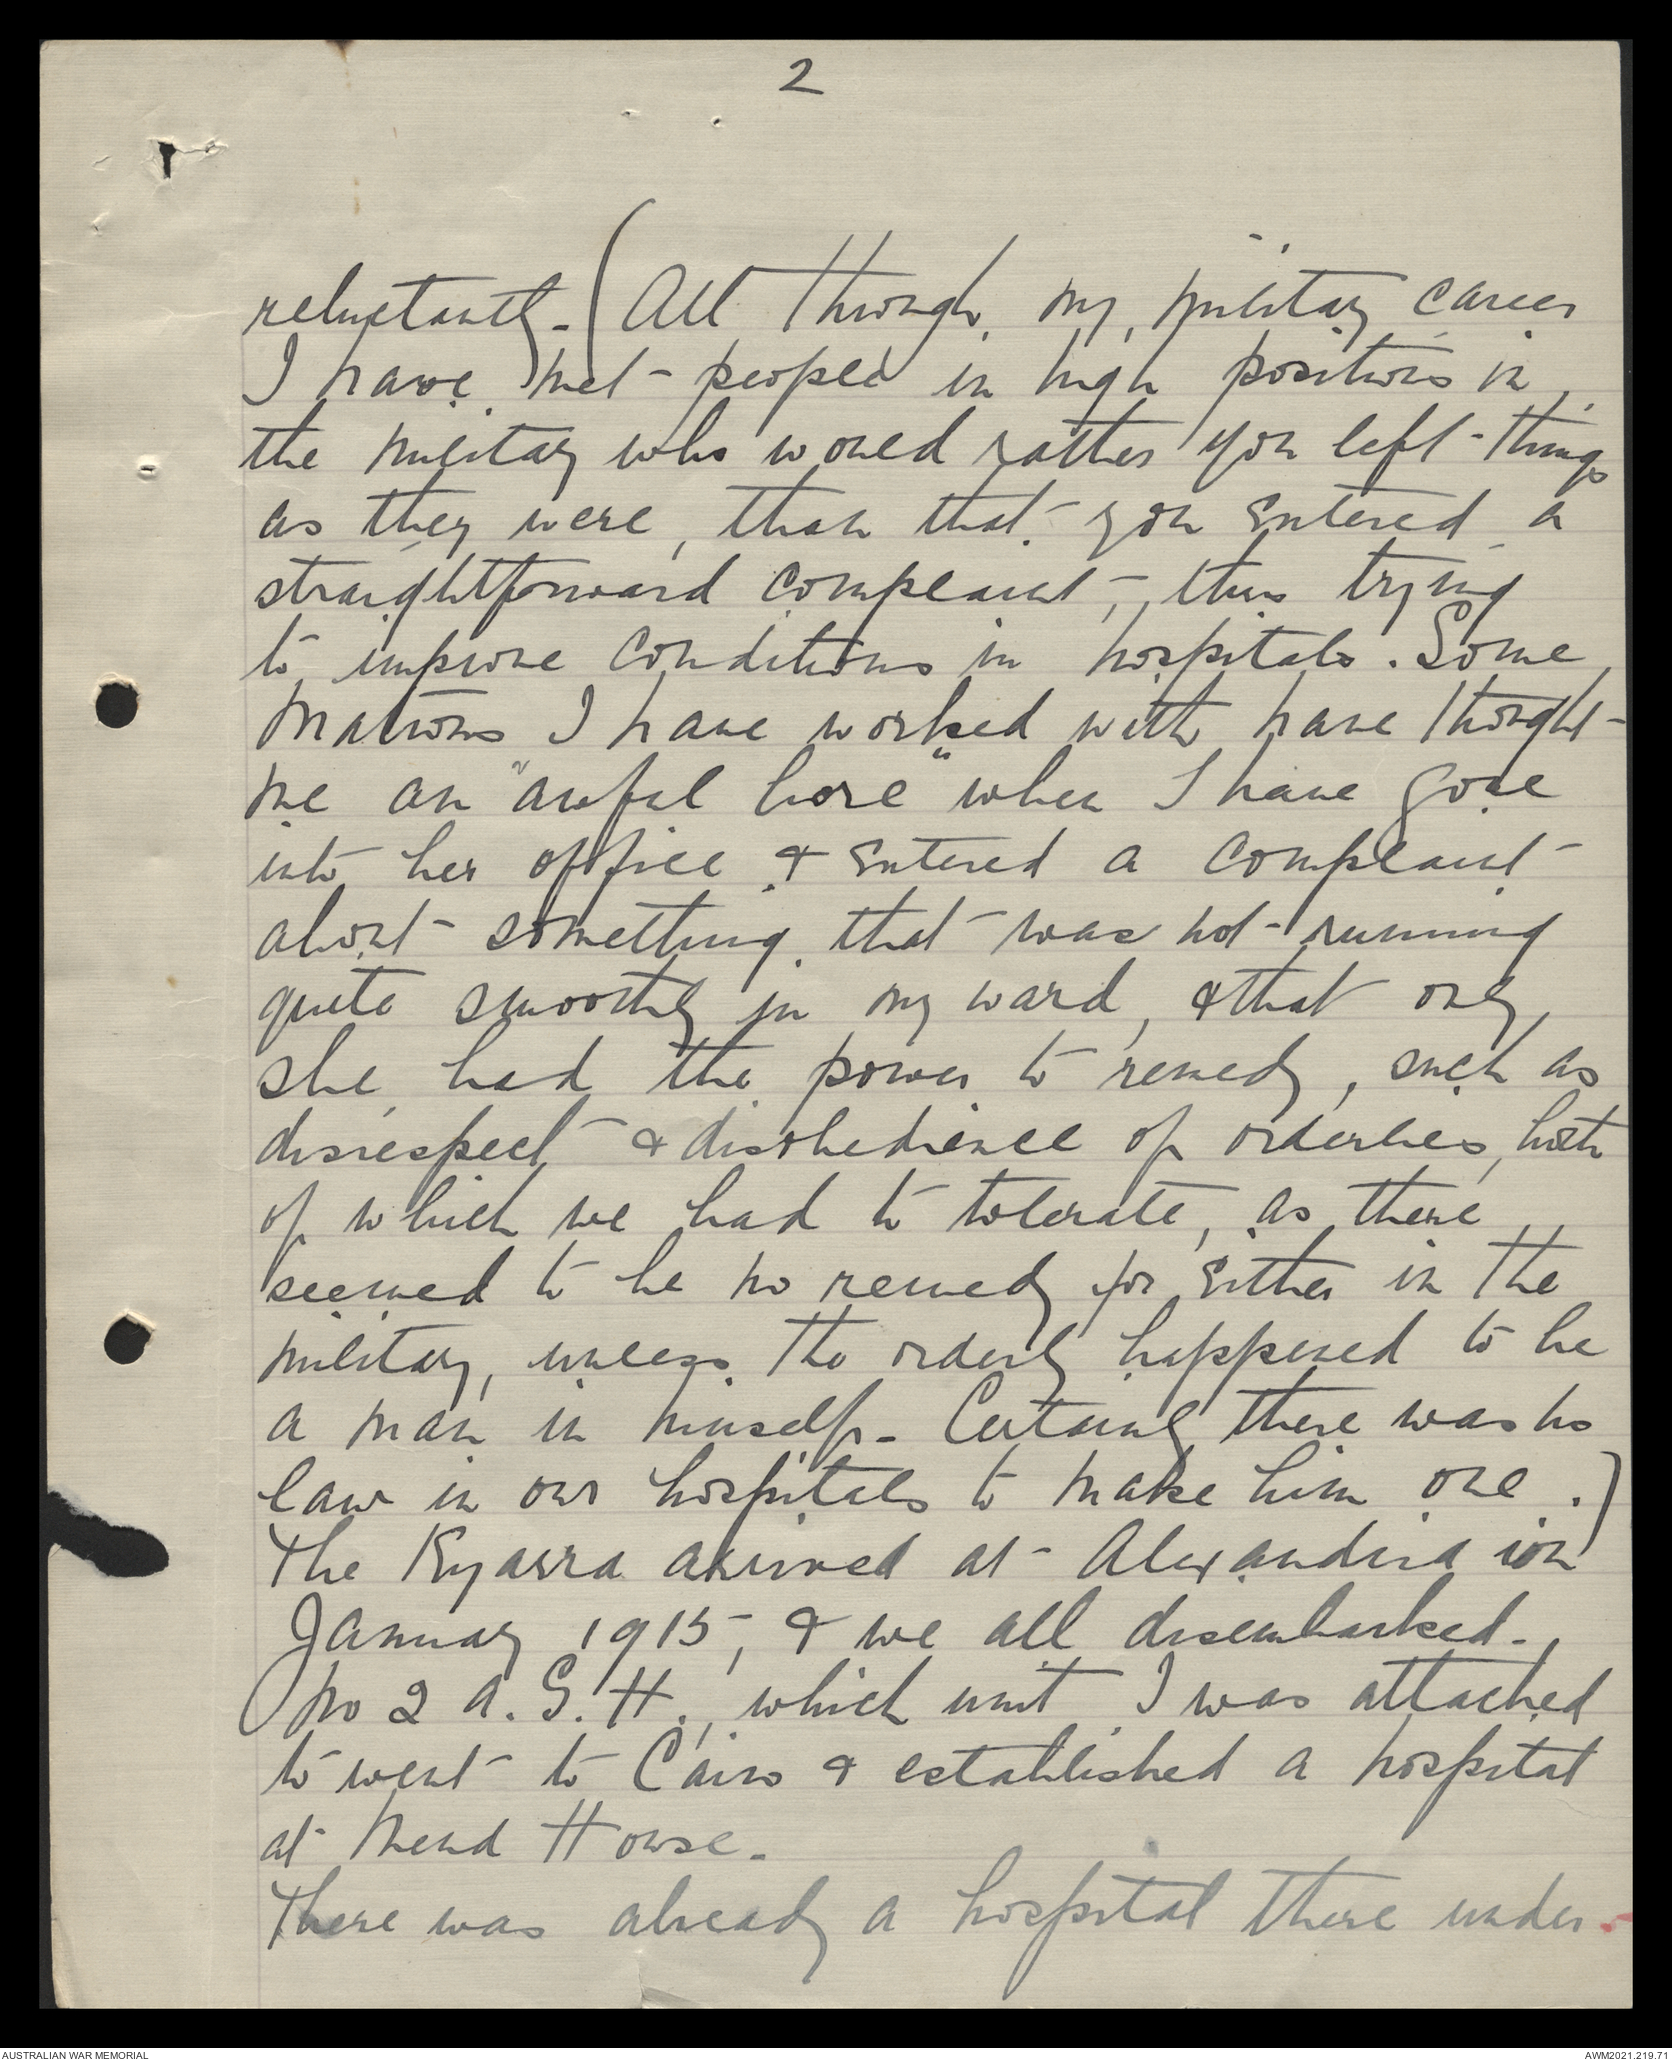 2
reluctantly. (All through my military career
I have met people in high positions in
the military who would rather you left things
as they were, than that you entered a
straightforward complaint, thus trying
to improve conditions in hospitals. Some
Matrons I have worked with have thought
me an "awful bore" when I have gone
into her office & entered a complaint
about something that was not running
quite smoothly in my ward, & that only
she had the power to remedy, such as
disrespect & disobedience of orderlies, both
of which we had to tolerate, as there
seemed to be no remedy for either in the
military, unless the orderly happened to be
a man in himself. Certainly there was no
law in our hospitals to make him one.)
The Kyarra arrived at Alexandria in
January 1915, & we all disembarked.
No 2 A.G.H., which unit I was attached
to went to Cairo & established a hospital
at Mena House.
There was already a hospital there under
AUSTRALIAN WAR MEMORIAL
AWM2021.219.71